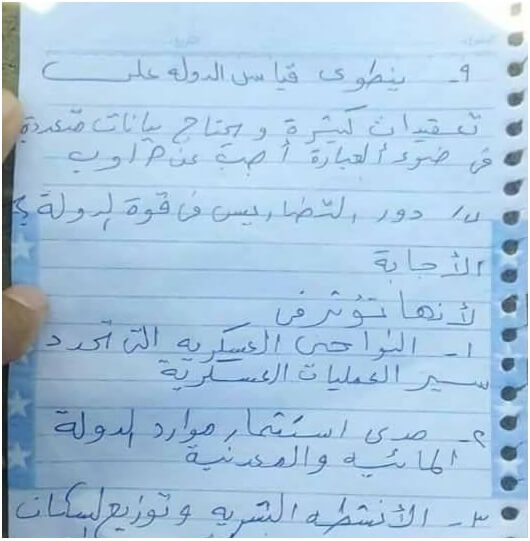 ٩- ينطوى قياس الدوله على
تعقيدات كثيرة ويحتاج بيانات متعددة
فى ضوء العبارة أجب عن
دور التضاريس فى قوة الدولة ؟
الأجابة
لأنها تؤثر فى
١- النواحى العسكريه التى تحدد
سير العمليات العسكرية
٢- مدى استثمار موارد الدولة
المائيه والمعدنية
٣- الأنشطه البشريه وتوزيع السكان